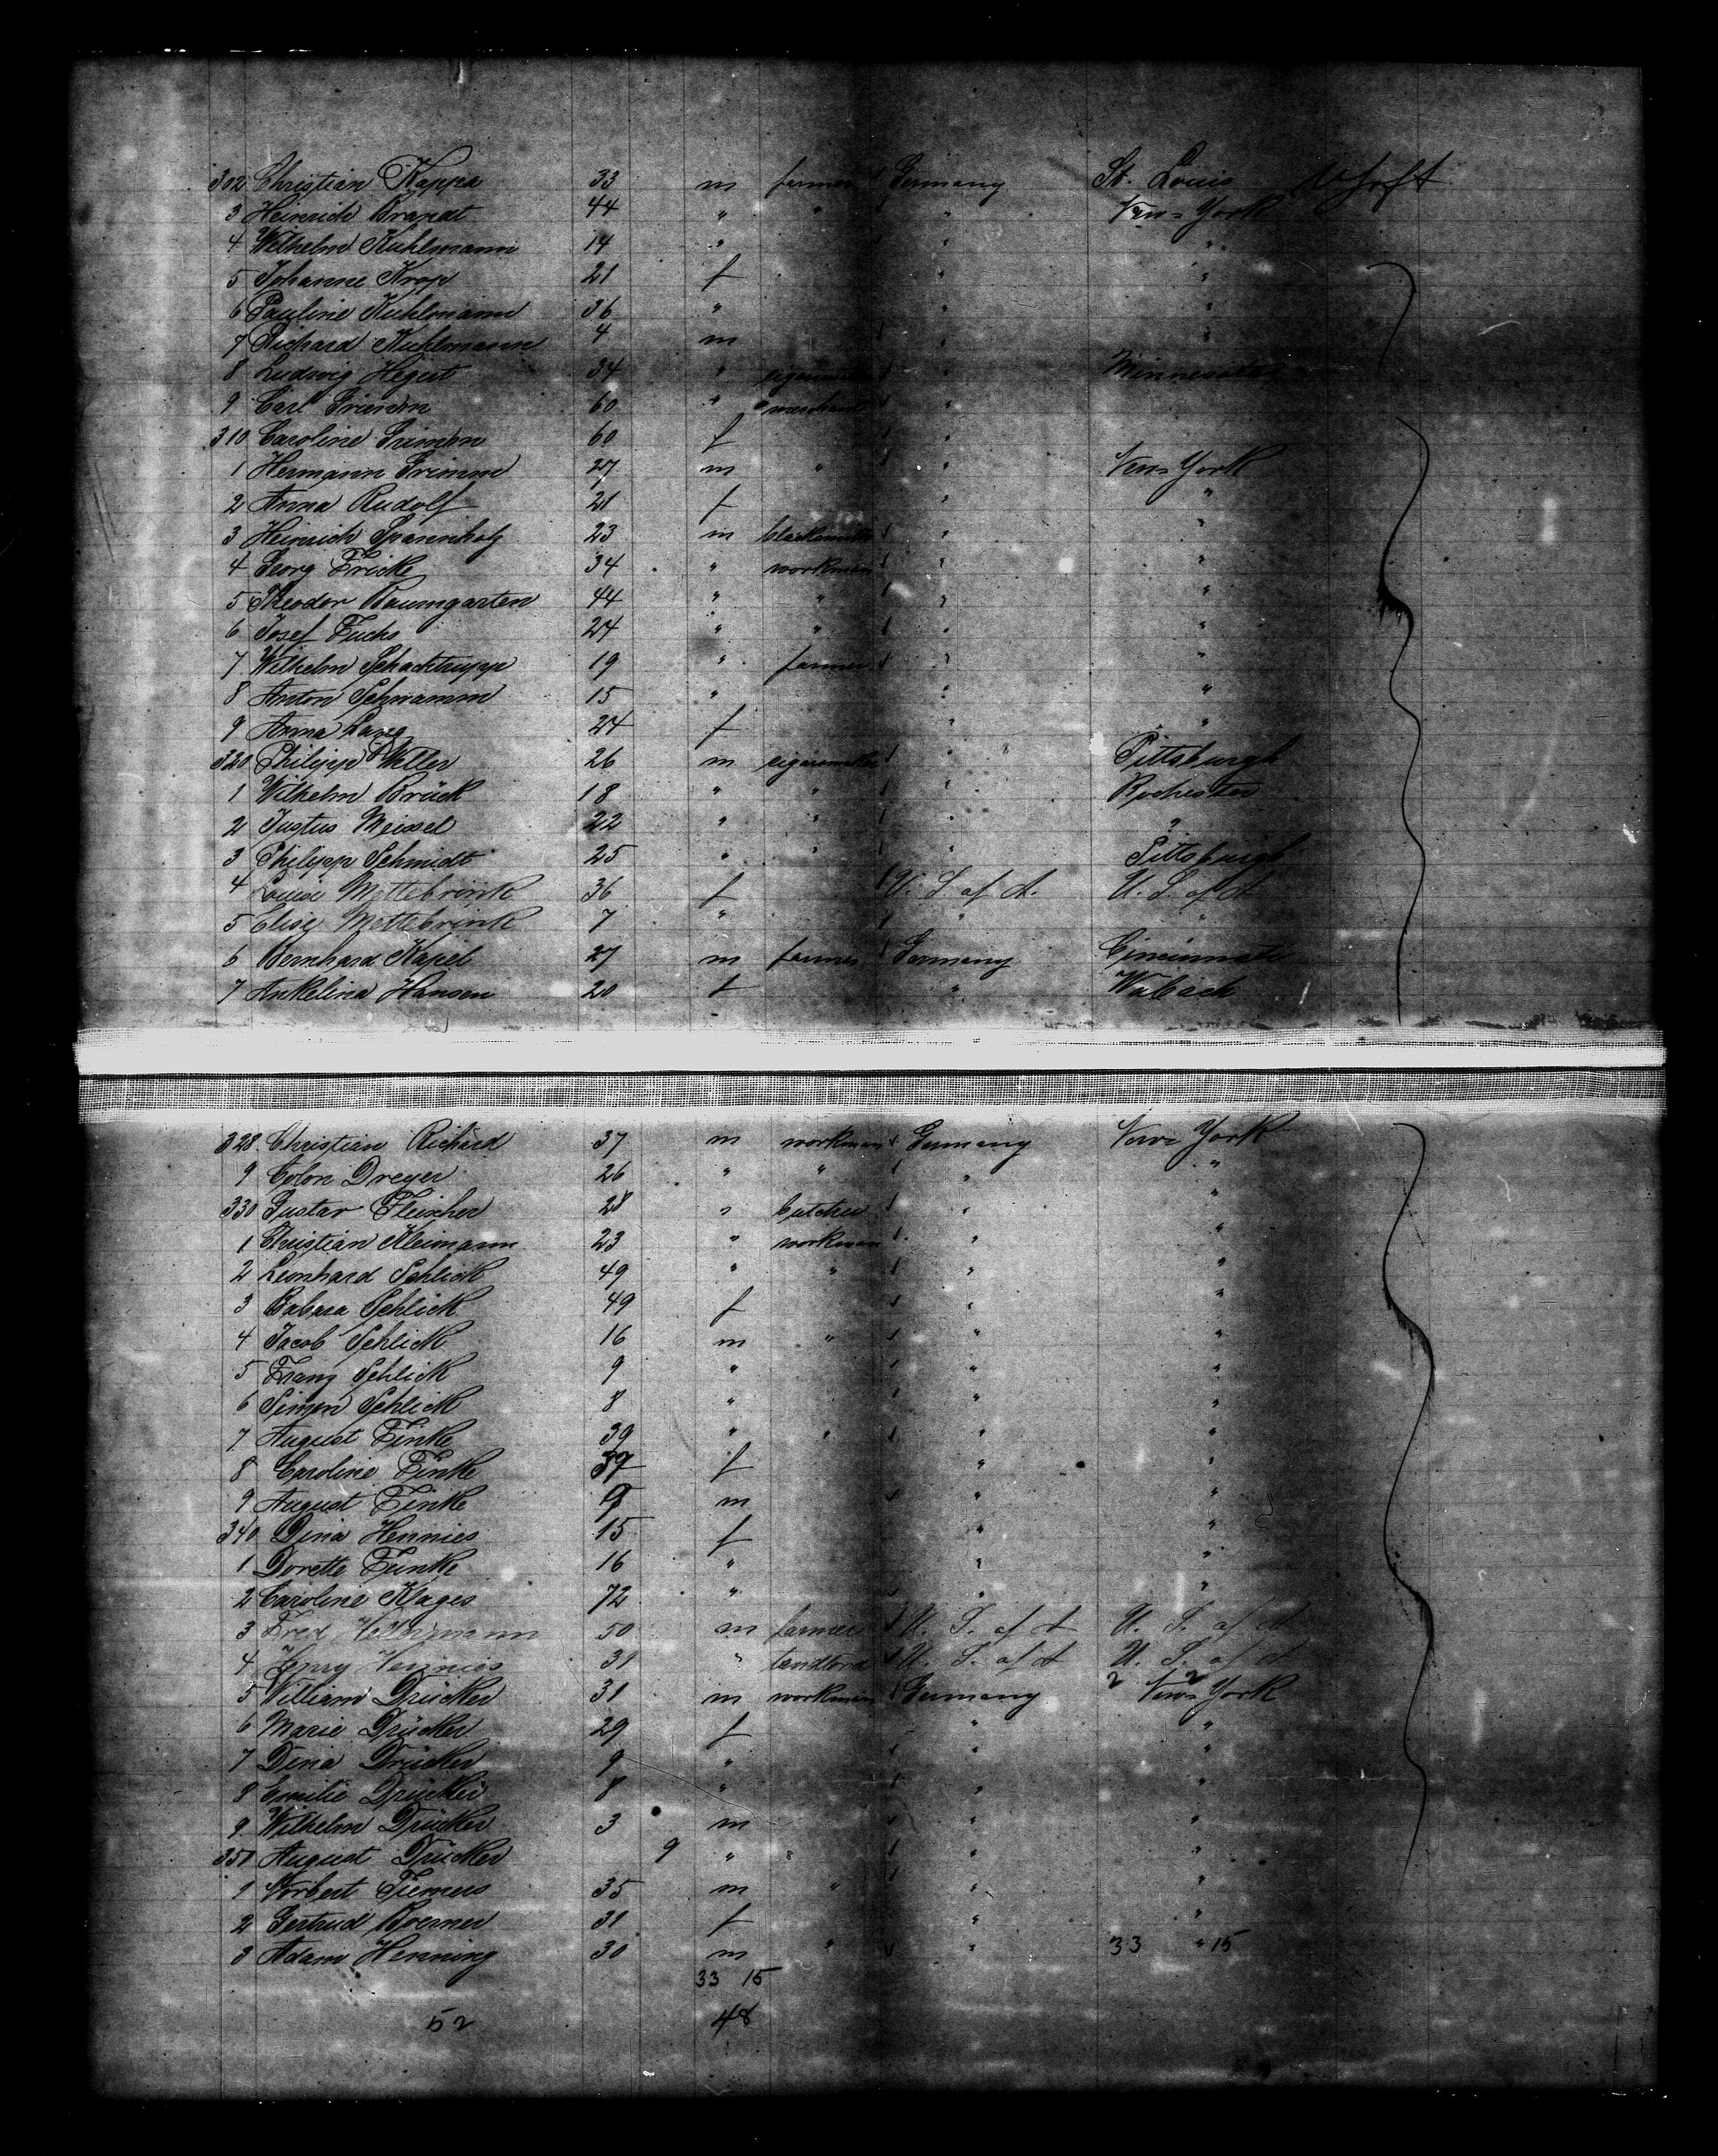 302 Christian Kappa 33 m farmer Germany St. Louis
3 Heinrich Brandt 44 " " " New-York
4 Wilhelm Kuhlmann 14 " " "
5 Johanne Krop 21 f " "
6 Pauline Kuhlmann 36 " " "
7 Richard Kuhlmann 4 m " "
8 Ludwig 34 " Minnesota
9 Carl 60 " merchant "
310 Caroline 60 f "
1 Hermann Grimm 27 m " " New-York
2 Anna Rudolf 21 f " "
3 Heinrich Spannholz 23 m blacksmith " "
4 Georg Fricke 34 " workman " "
5 Theodor Baumgarten 44 " " " "
6 Josef Fuchs 24 " " " "
7 Wilhelm Schachtrupp 19 " farmer " "
8 Anton Schramm 15 " " "
9 Anna Lang 24 f " "
320 Philipp Weller 26 m cigarmaker " Pittsburgh
1 Wilhelm Brück 18 " " " Rochester
2 Justus Meissel 22 " " " "
3 Philipp Schmidt 25 " " " Pittsburgh
4 Louise Mottebrink 36 f U. S. of A. U. S. of A
5 Elise Mottebrink 7 " " "
6 Bernhard Kapel 27 m farmer Germany Cincinnati
7 Ankelina Hansen 20 f " Wabash
328. Christian Richard 37 m workman Germany New-York
9 Colon Dreyer 26 " " " "
330 Gustav Fleischer 28 " butcher " "
1 Christian Kleimann 23 " workman " "
2 Leonhard Schlick 49 " " " "
3 Babara Schlick 49 f " "
4 Jacob Schlick 16 m " " "
5 Franz Schlick 9 " " "
6 Simon Schlick 8 " " "
7 August Finke 39 " " " "
8 Caroline Finke 37 f " "
9 August Finke 9 m " "
340 Dina Hennies 15 f " "
1 Dorette Funke 16 " " "
2 Caroline Klages 72 " " "
3 Fred 50 m farmer U. S. of A U. S. of A
4 Henry Hennies 31 " landlord U. S. of A U. S. of A
5 William Drücker 31 m workman Germany 2 2 New-York
6 Marie Drücker 29 f " "
7 Dina Drücker 9 " " "
8 Emilie Drücker 8 " " "
9 Wilhelm Drücker 3 m " "
350 August Drücker 9 " " "
1 Norbert Tiemers 35 m " " "
2 Gertrud 31 f " "
3 Adam Henning 30 m " " 33 " 15
33 15
52 48